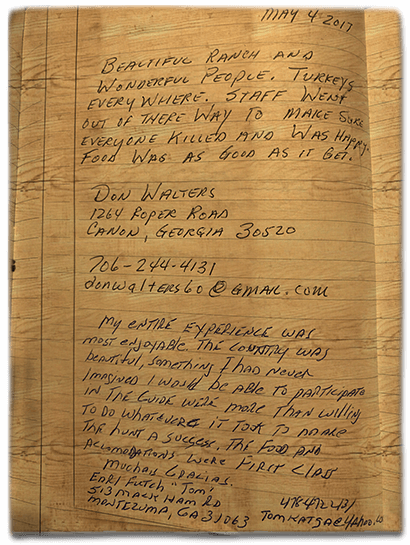 MAY 4 2017
BEAUTIFUL RANCH AND
WONDERFUL PEOPLE. TURKEYS
EVERYWHERE. STAFF WENT
OUT OF THERE WAY TO MAKE SURE
EVERYONE KILLED AND WAS HAPPY.
FOOD WAS AS GOOD AS IT GET.
DON WALTERS
1264 ROPER ROAD
CANON, GEORGIA 30520
706-244-4131
donwalters60@GMAIL.COM
My ENTIRE EXPERIENCE WAS
most ENJOYABLE. THE COUNTRY WAS
beautiful, SOMETHING I HAD NEVER
IMAGINED I WOULD BE ABLE TO PARTICIPATE
IN. THE GUIDE WERE MORE THAN WILLING
TO DO WHATEVER IT TOOK TO MAKE
THE HUNT A SUCCESS. THE FOOD AND
ACCOMODATIONS WERE FIRST CLASS
MUCHAS GRACIAS.
EARL FUTCH "TOM"
513 MACK HAM RD
MONTEZUMA, GA 31063
TOMKATSGA@YAHOO.CO